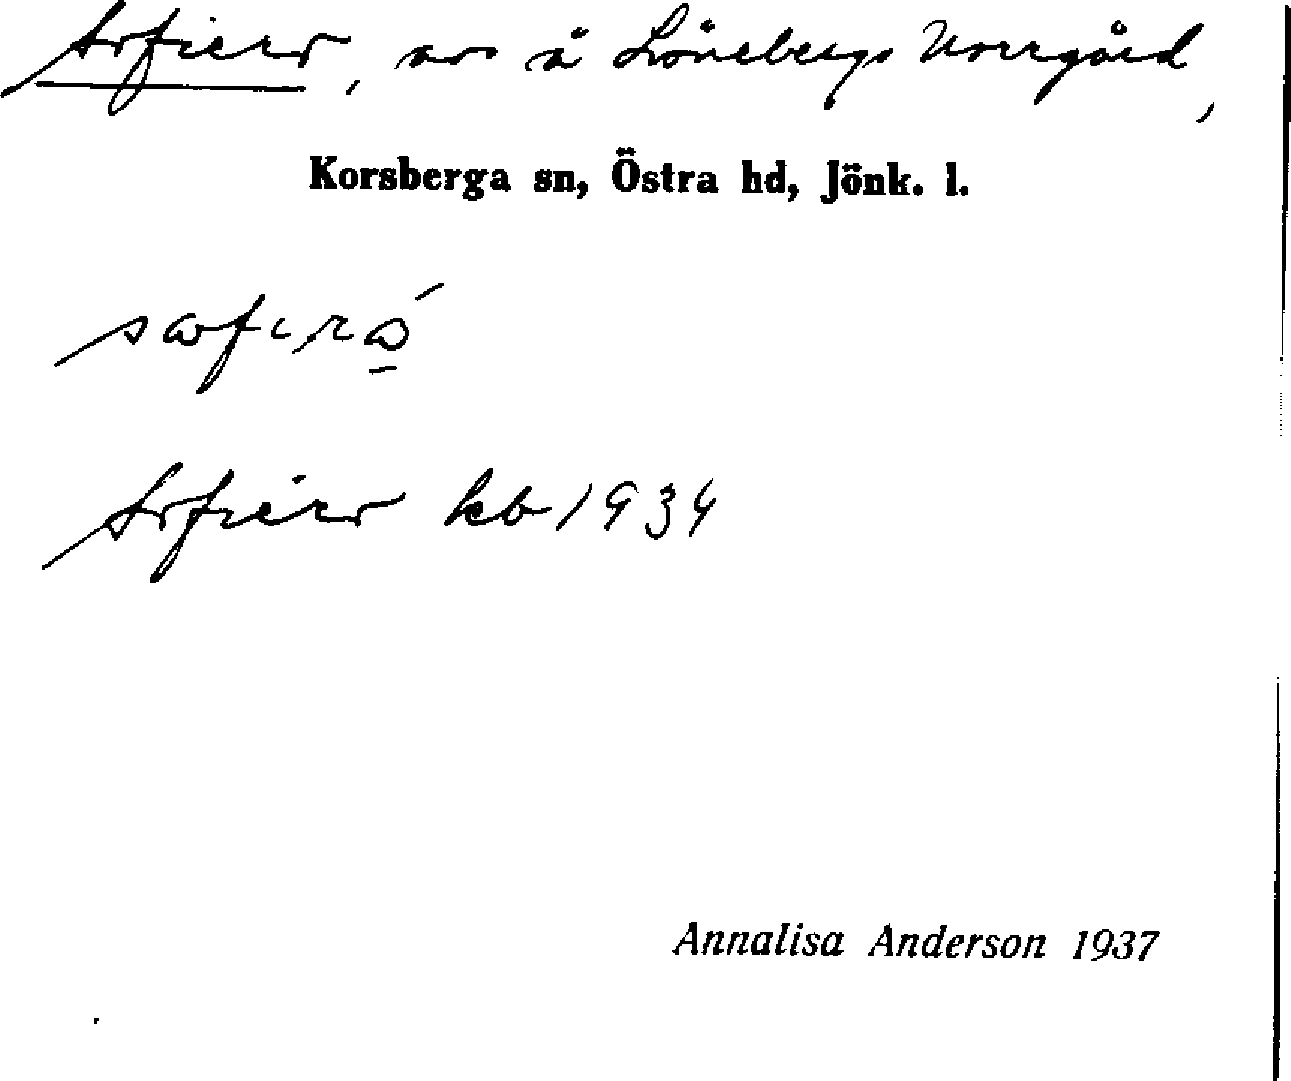 Sofiero, avs å Lönebergs Norrgård,
Korsberga sn, Östra hd, Jönk. l.
Sofiero kb 1934
Annalisa Anderson 1937